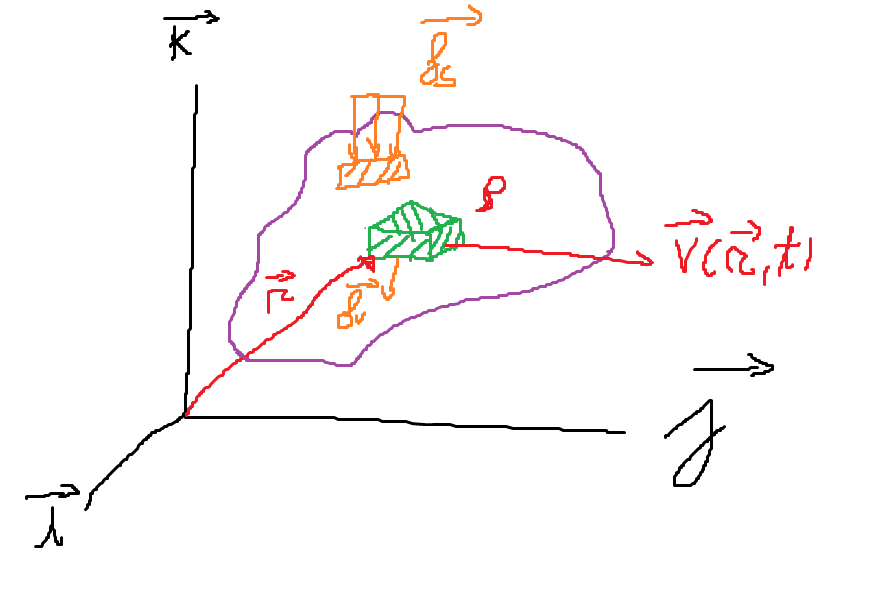 k
f_s
ρ
v(r,t)
r
f_v
j
i